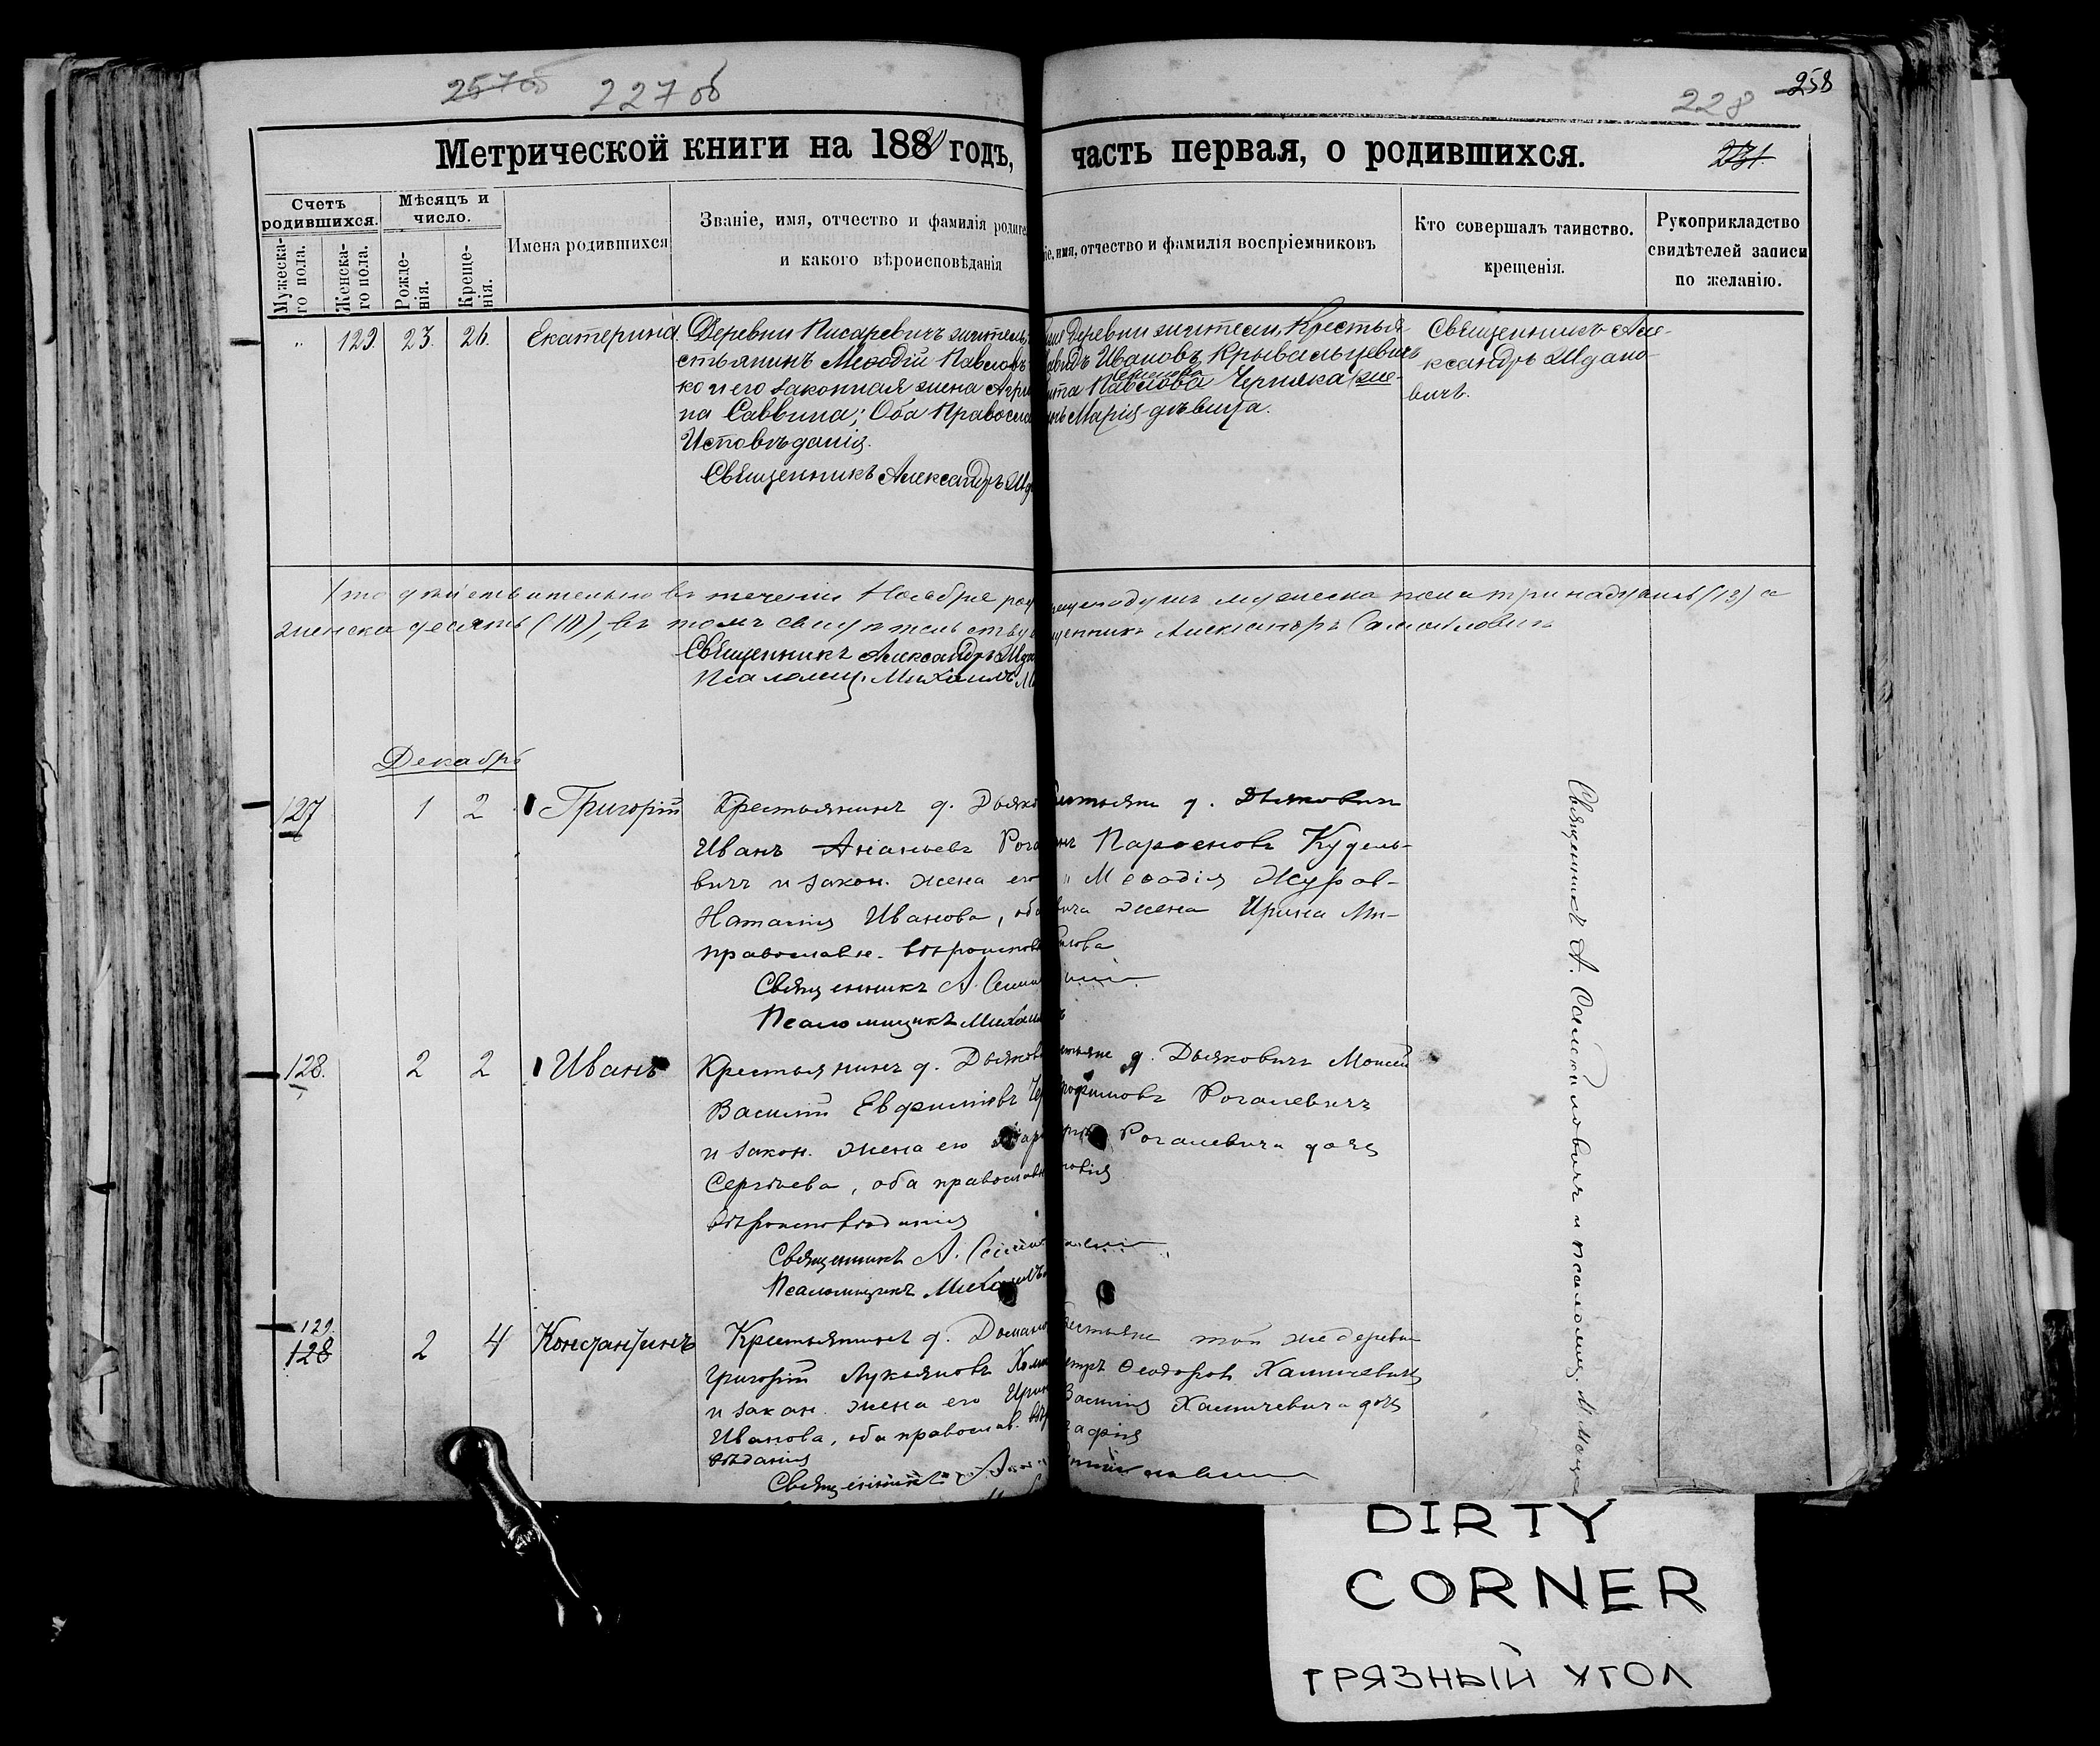 257об 227об
228 258
Метрической книги на 188 годъ, часть первая, о родившихся.
231.
Счетъ родившихся.
Мѣсяцъ и число.
Мужеска-го пола.
Женска-го пола.
Рожде-нія.
Креще-нія.
Имена родившихся
Званіе, имя, отчество и фамилія родите
и какого вѣроисповѣданія
іе, имя, отчество и фамилія воспріемниковъ
Кто совершалъ таинство.
крещенія.
Рукоприкладство
свидѣтелей записи
по желанію.
" 129. 23. 26. Екатерина.
Деревни Писаревичъ житель
стьянинъ Меѳодій Павловъ
ко и его законная жена Агри
па Саввина; Оба Правосла
Исповѣданія.
Священникъ Александръ
Деревни жители, Крестья-
Давидъ Ивановъ Крывальцевичъ
Павлова Черняка
Марія-дѣвица.
Священникъ Але-
ксандръ Ждано-
вичъ.
Что дѣйствительно въ теченіи Ноября
мужеска пола тринадцать (13) и
женска десять (10), въ томъ свидѣтельству
щенникъ Александръ Самойловичъ
Священникъ Александръ
Псаломщ. Михаилъ
Декабрь
127 1 2 Григорій
Крестьянинъ д. Дьяко
Иванъ Ананьевъ Рога
вичъ и закон. жена его
Наталия Иванова, оба
православн. вѣроисповѣ
Священникъ А.
Псаломщикъ Михаилъ
д. Дьяковичъ
Парѳеновъ Кудель-
" Меѳодія Журав-
вича жена Ирина Ми-
лова
128. 2 2 Иванъ
Крестьянинъ д. Дьякови
Василій Евфимовъ
и закон. жена его
Сергѣева, оба православн
вѣроисповѣданія
Священникъ А.
Псаломщикъ Михаилъ
д. Дьяковичъ Моисей
Трофимовъ Рогалевичъ
Рогалевича дочь
Священникъ А. Самойловичъ и псаломщ. М.
129.
128 2 4 Константинъ
Крестьянинъ д. Домано
Григорій Лукьяновъ
и закон. жена его Ирин
Иванова, оба православ. вѣр
вѣданія
Священникъ А.
той же деревни
Петръ Ѳеодоровъ Халимевичъ
Василия Халимевича дочь
DIRTY
CORNER
ГРЯЗНЫЙ УГОЛ